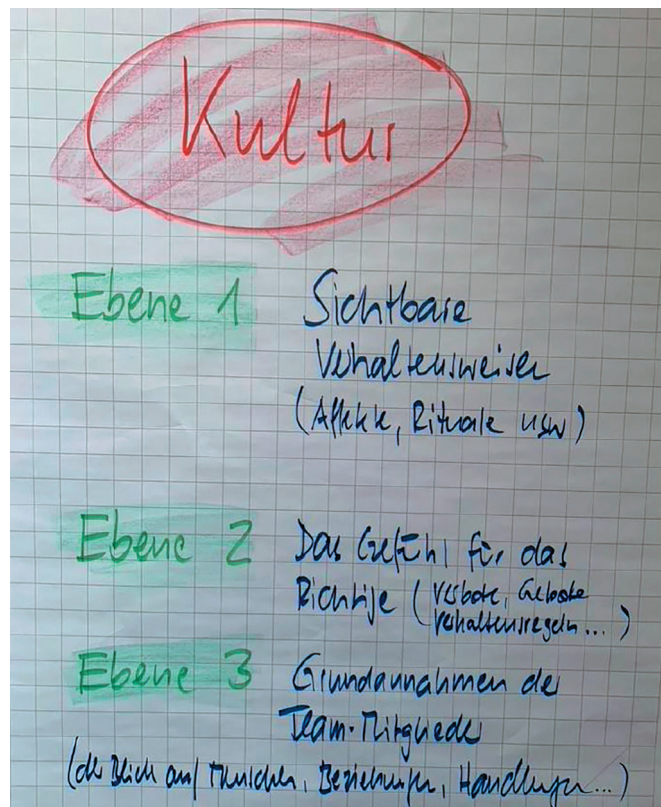 Kultur
Ebene 1 Sichtbare
Verhaltensweisen
(Affekte, Rituale usw)
Ebene 2 Das Gefühl für das
Richtige (Verbote, Gebote
Verhaltensregeln...)
Ebene 3 Grundannahmen der
Team-Mitglieder
(der Blick auf Menschen, Beziehungen, Handlungen...)